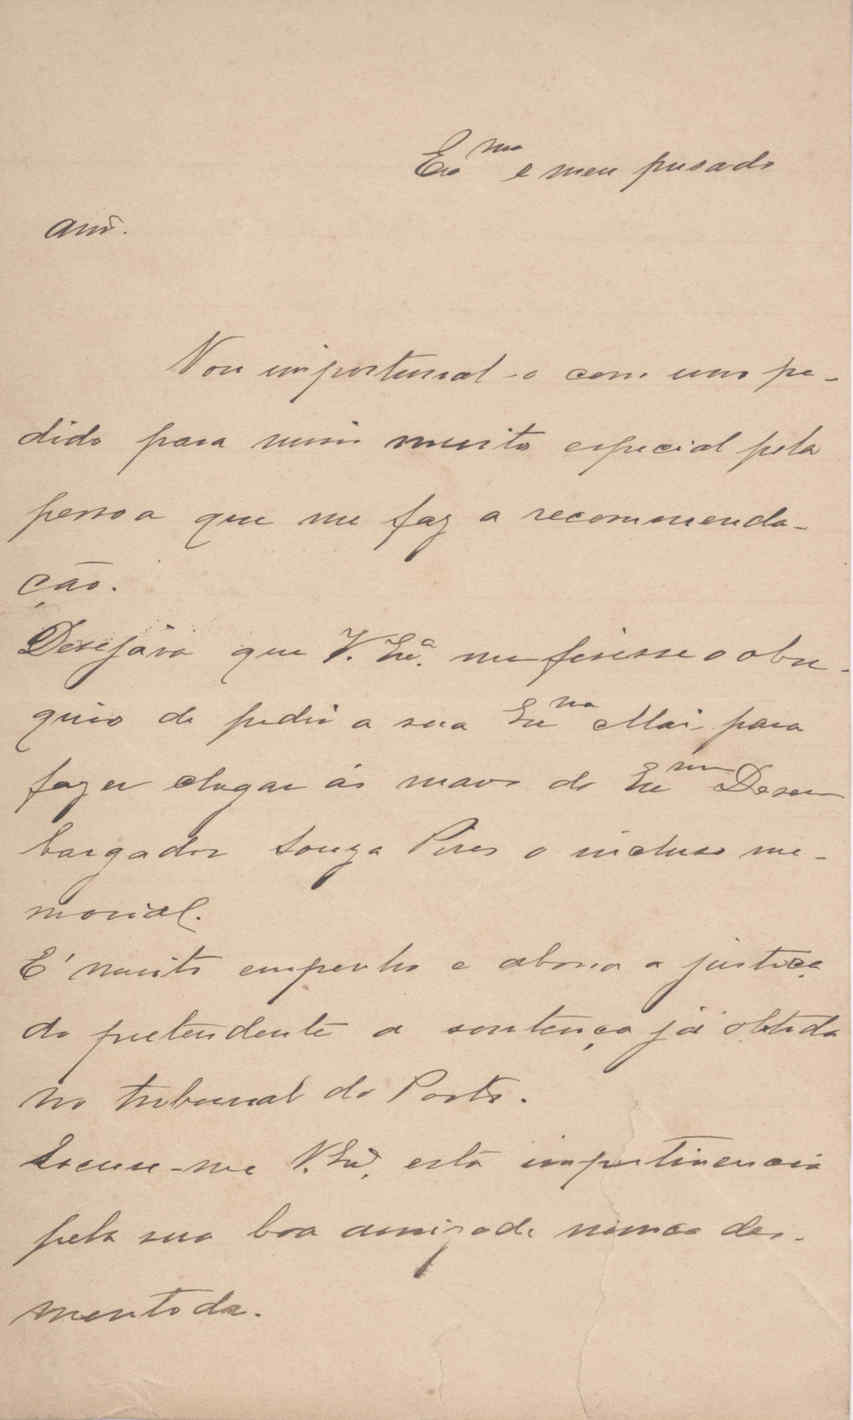 Exmo e meu presado
amo.
Vou importunal-o com um pe-
dido para mim muito especial pela
pessoa que me faz a recommenda-
ção.
Desejava que V. Exa. me fisesse o obse-
quio de pedir a sua Exma Mãi para
fazer chegar ás mãos do Exmo Desem
bargador Souza Pires o incluso me-
morial.
E' muito empenho e abona a justiça
do pretendente a sentença já obtida
no tribunal do Porto.
Excuse-me V. Exa. esta impertinencia
pela sua boa amizade nunca des-
mentida.